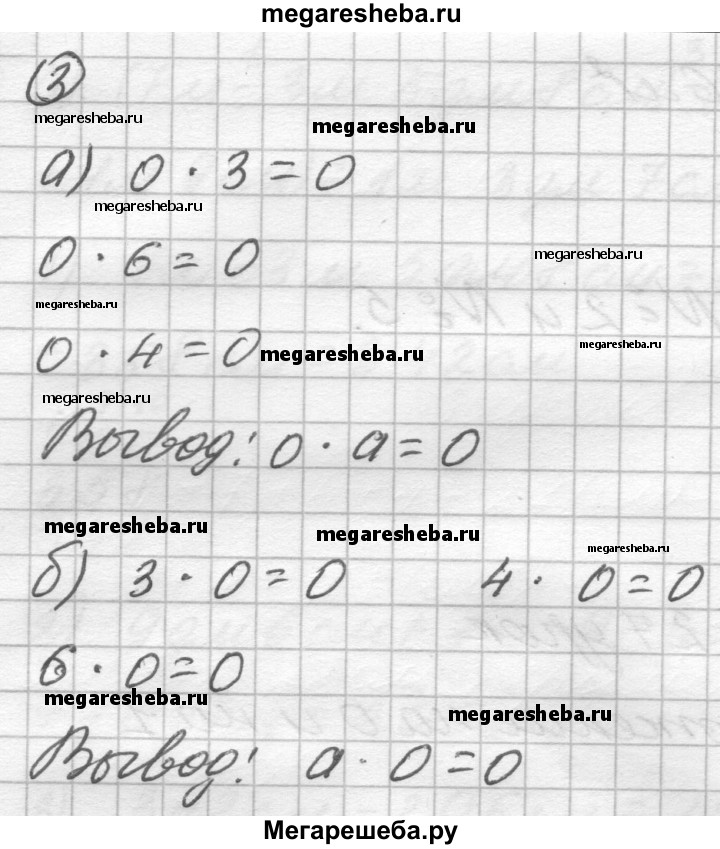 megaresheba.ru
3
megaresheba.ru
megaresheba.ru
а) 0 · 3 = 0
megaresheba.ru
0 · 6 = 0
megaresheba.ru
megaresheba.ru
0 · 4 = 0
megaresheba.ru
megaresheba.ru
megaresheba.ru
Вывод: 0 · а = 0
megaresheba.ru
megaresheba.ru
megaresheba.ru
б) 3 · 0 = 0 4 · 0 = 0
6 · 0 = 0
megaresheba.ru
megaresheba.ru
Вывод: а · 0 = 0
Мегарешеба.ру